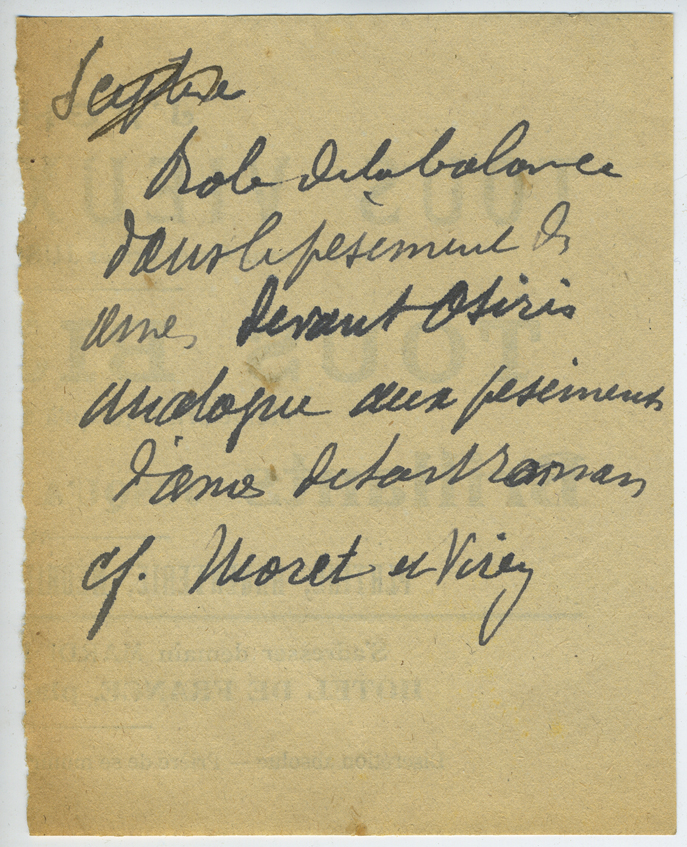 Role de la balance
dans le pèsement des
ames devant Osiris
analogue aux pesements
d'ames de l'art roman
cf. Moret et Virey